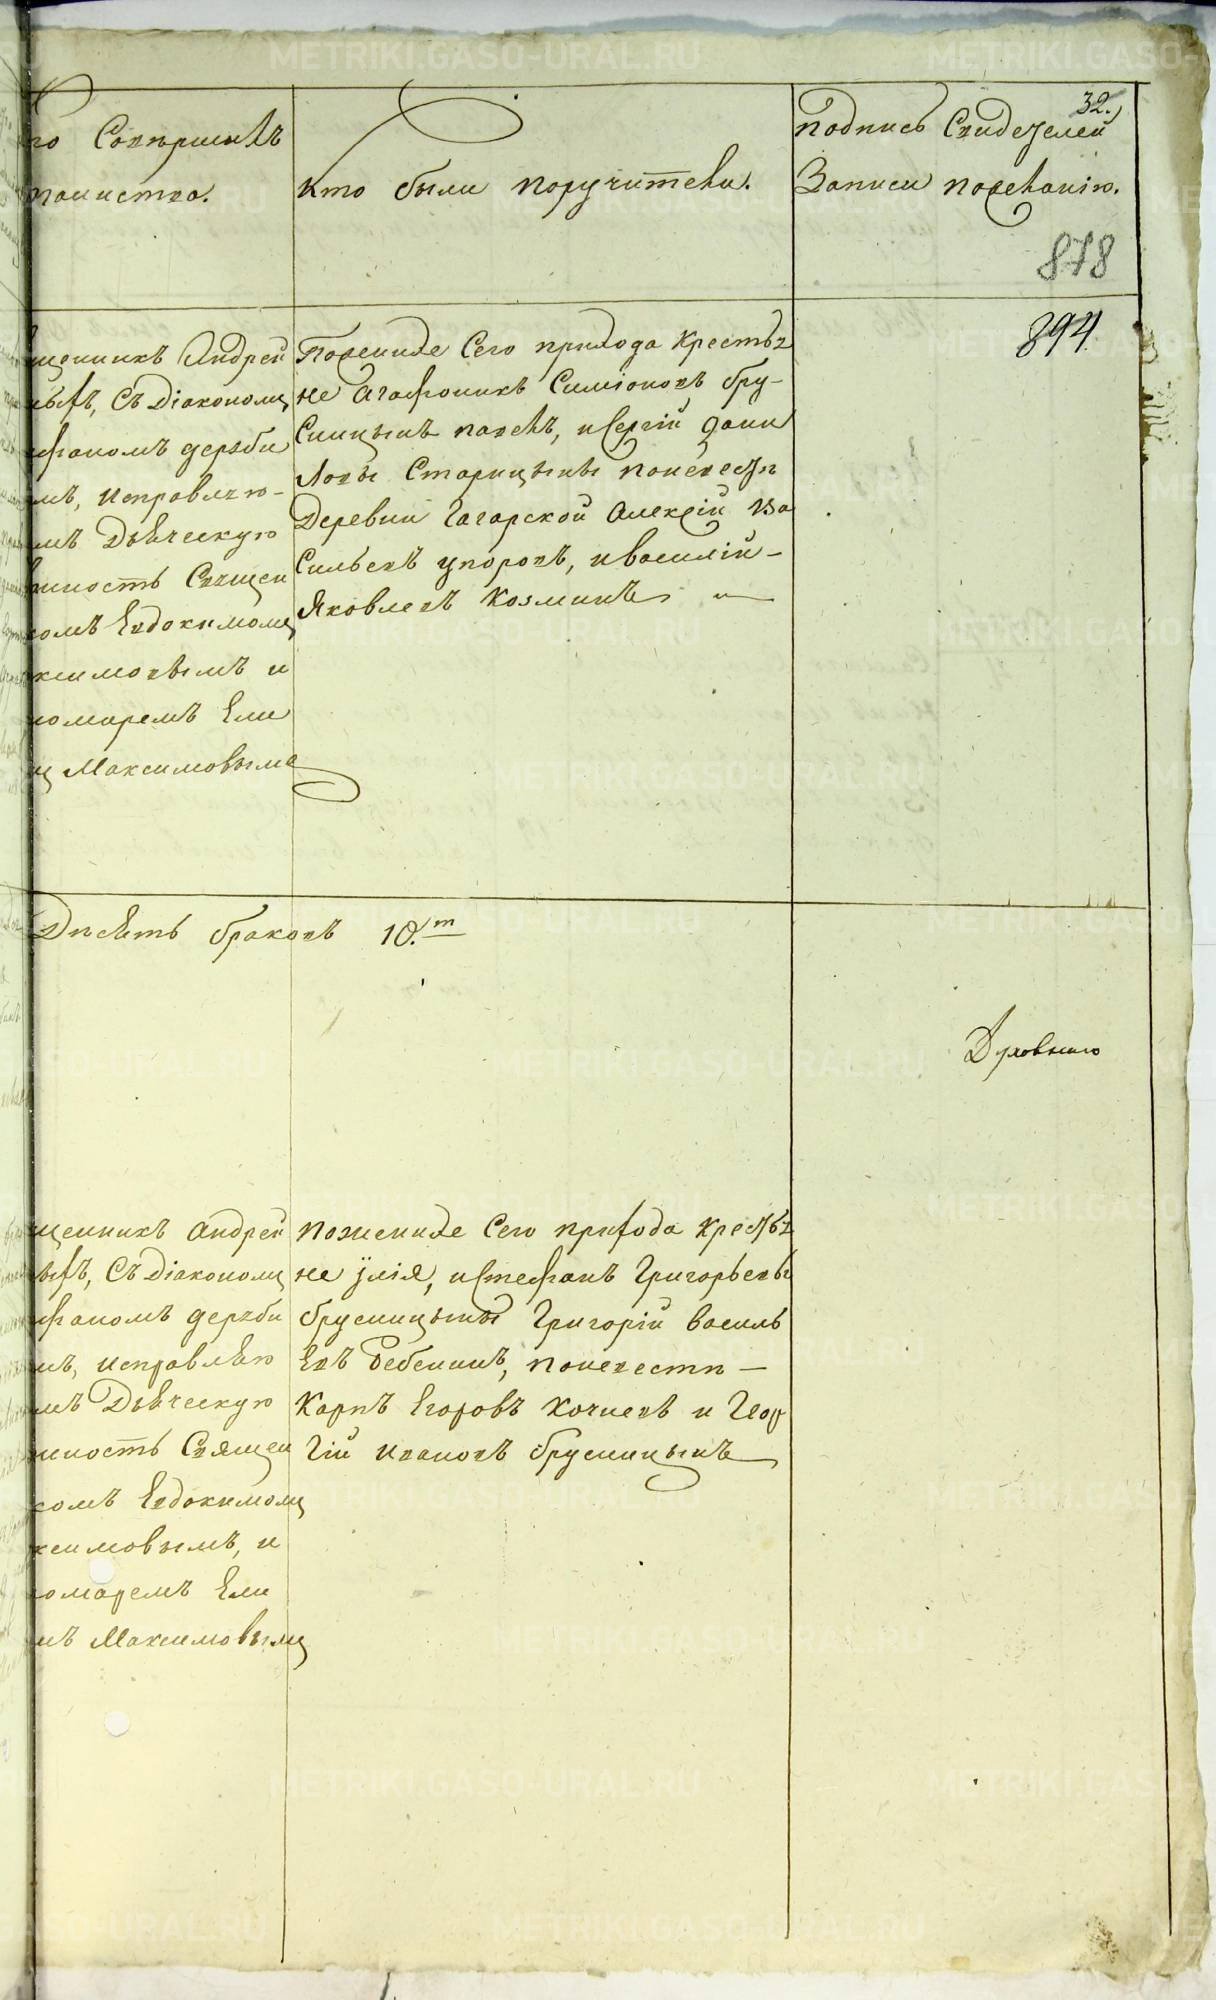 32.
то Совершилъ
таинства.
кто были поручители.
Подпись Свидетелей
Записи пожеланію.
878
894
щенникъ Андрей
выхъ, съ Діакономъ
фаномъ деряби
мъ, исправляю-
мъ Дьяческую
жность Священ
комъ Евдокимомъ
ксимовымъ и
номаремъ Ели
ъ Максимовымъ
По женихе Сего прихода крестья
не Агафоникъ Симіоновъ бру-
сницынъ павелъ, и Сергій дани
ловы Старицыны по невесте
Деревни Гагарской Алексій Ва
сильевъ упоровъ, и василій
Яковлевъ Козминъ
Десять браковъ 10.т
Духовнаго
щенникъ андрей
выхъ, съ Діакономъ
фаномъ деряби
мъ, исправляю
мъ Дьяческую
жность Священ
комъ Евдокимомъ
ксимовымъ, и
номаремъ Ели
мъ Максимовымъ
по женихе Сего прихода крестья
не илія, и Стефанъ Григорьевы
брусницыны Григорій василь
евъ Ребенинъ, по невесте
Карпъ Егоровъ Кочневъ и Геор
гій ивановъ брусницынъ
METRIKI.GASO-URAL.RU